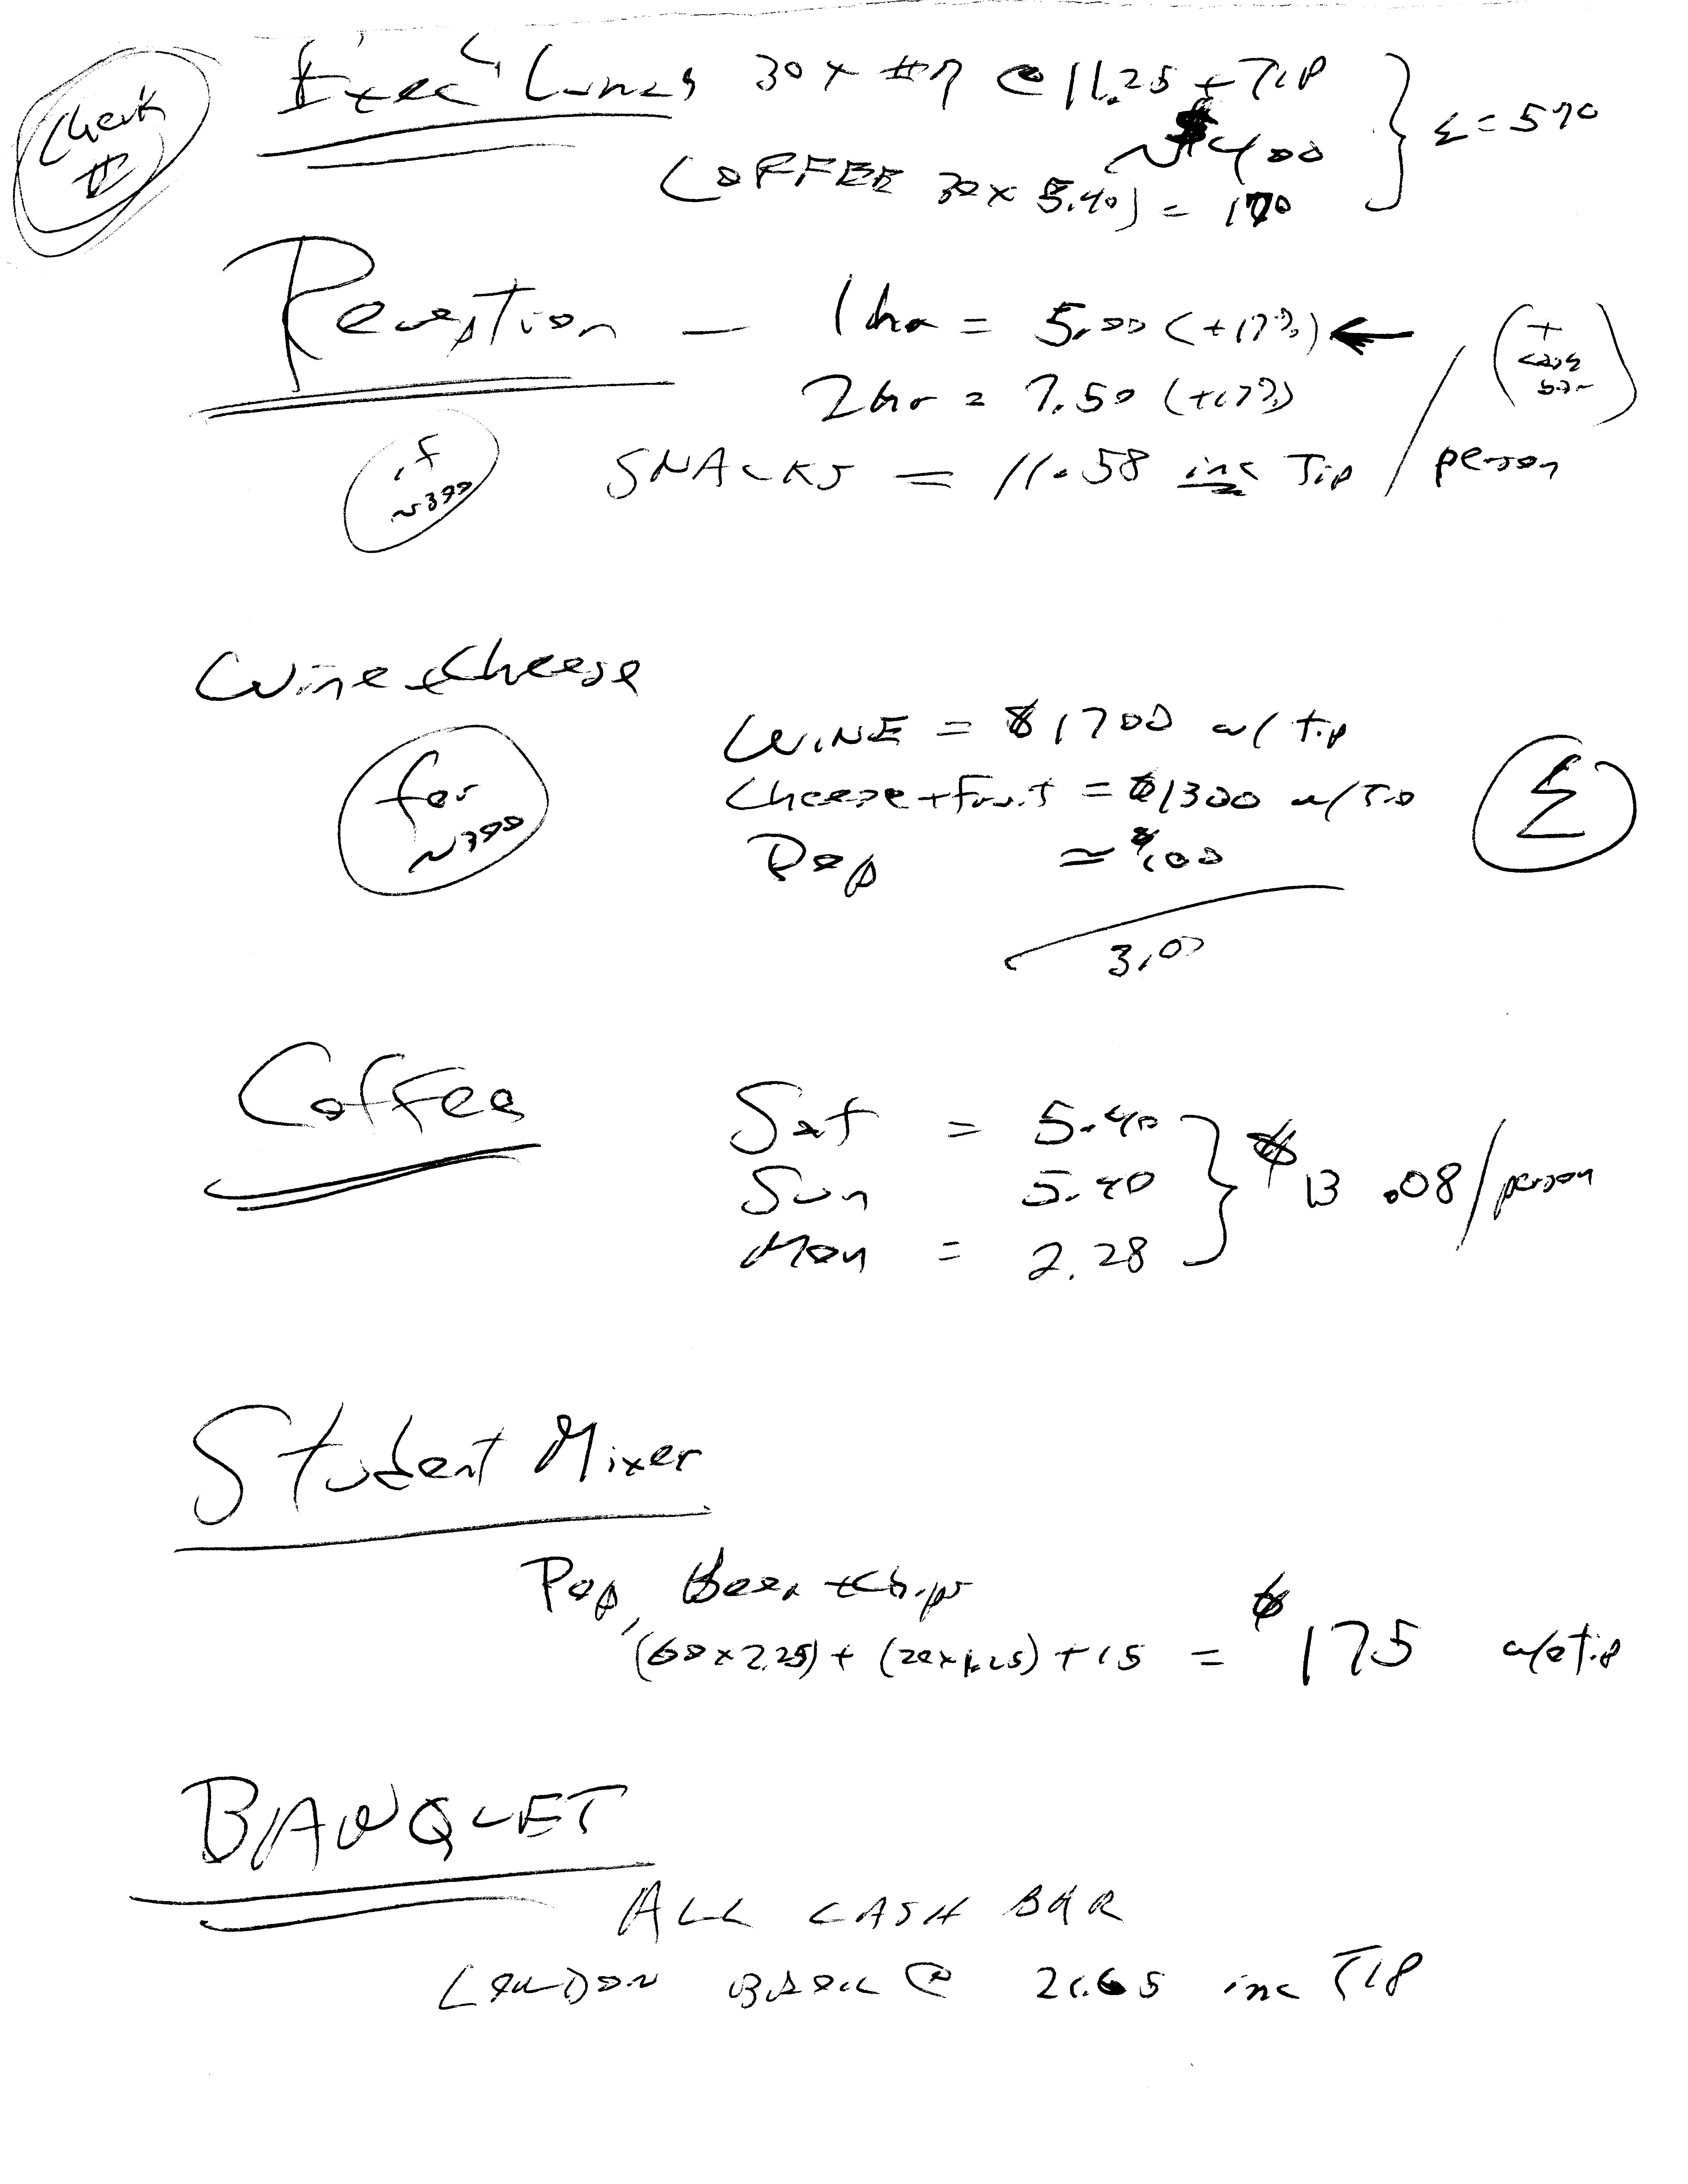 Check #
Exec Lunch 30 x #7 @ 11.25 + TIP
~ $400
COFFEE 30 x 5.40) = 170
} Σ = 570
Reception — 1 hr = 5.00 (+17%) ←
2 hr = 7.50 (+17%)
(+ cash bar)
if ~300
SNACKS = 11.58 inc Tip / person
Wine + Cheese
for ~300
WINE = $1700 w/ tip
Cheese + Fruit = $1300 w/ Tip
Pop ≃ $100
Σ
Coffee
Sat = 5.40
Sun 5.40
Mon = 2.28
} $13.08/person
Student Mixer
Pop, Beer + Chips
(60 x 2.25) + (20 x 1.25) + 15 = $175 w/o tip
BANQUET
ALL CASH BAR
LONDON BROIL @ 21.65 inc TIP